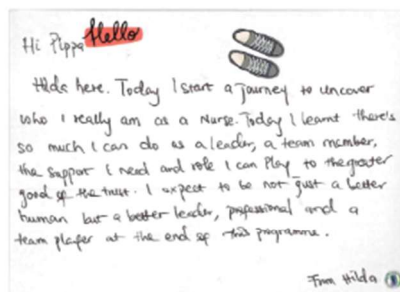 Hi Pippa Hello
Hilda here. Today I start a journey to uncover
who I really am as a Nurse. Today I learnt there's
so much I can do as a leader, a team member,
the support I need and role I can play to the greater
good of the trust. I expect to be not just a better
human but a better leader, professional and a
team player at the end of this programme.
From Hilda